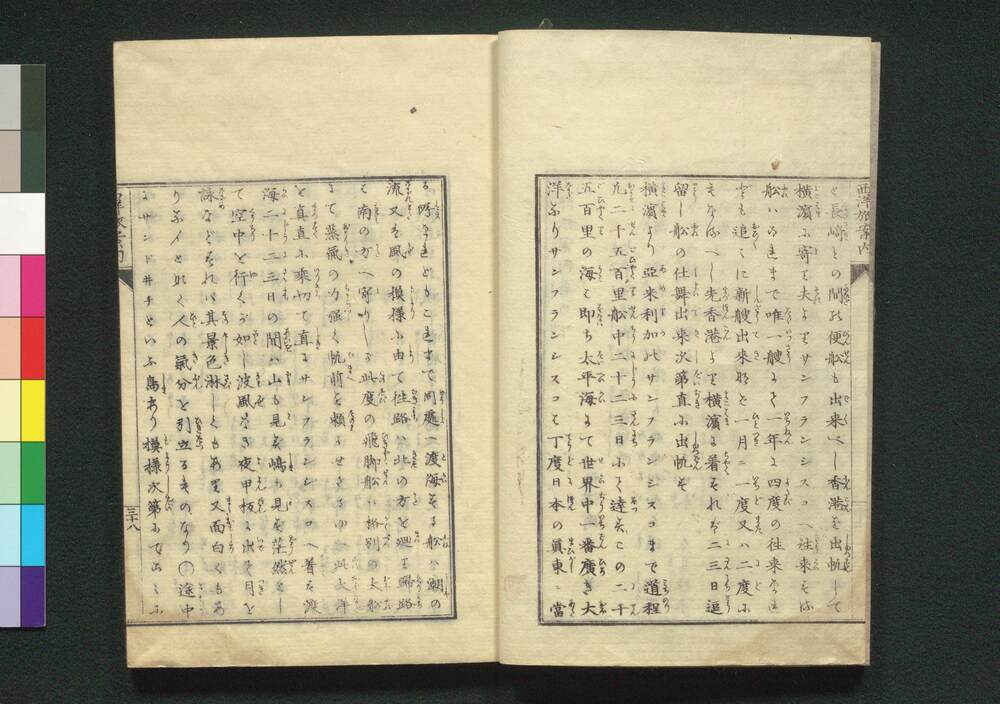 西洋旅案内
と長崎との間の便船も出来べし香港を出帆して
横濱に寄せ夫よりサンフランシスコへ往来する
船ハ今まで唯一艘にて一年に四度の往来なれ
ども追々に新艘出来なバ一月に一度又ハ二度に
もなるべし先香港より横濱に着それから二三日逗
留し船の仕舞出来次第直に出帆す
横濱より亞米利加北サンフランシスコまで道程
九二千五百里船中二十二三日にて達すこの二千
五百里の海ハ即ち太平海にて世界中一番廣き大
洋なりサンフランシスコは丁度日本の眞東に當
る所なれどもこれまで同處へ渡海する船ハ潮の
流又は風の模様に由て往路ハ北の方を廻り歸路
は南の方へ寄りしが此度の飛脚船ハ格別の大船
にて蒸氣の力強く帆前を頼にせざるゆへ此大洋
を真直に乗切て直にサンフランシスコへ着す渡
海二十二三日の間ハ山も見えず嶋も見えず茫然とし
て空中を行くが如し波風なき夜甲板に出て月を
詠などすれバ其景色淋しくもあり又面白くもあ
り
なく人の氣分を引立るものなり〇途中
にサンドヰチといふ島あり模様次第にてこゝに
三十八